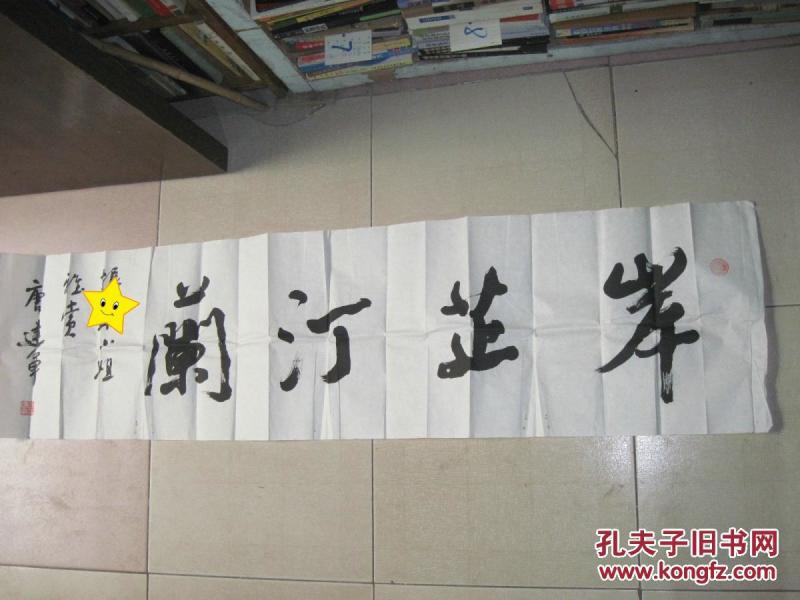 岸芷汀蘭
小姐
雅賞
唐建軍
7
8
孔夫子旧书网
www.kongfz.com